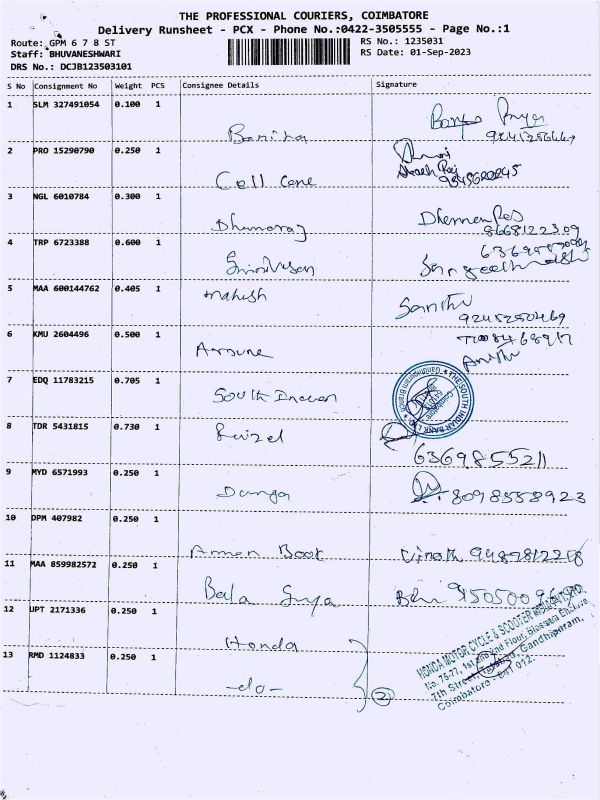 THE PROFESSIONAL COURIERS, COIMBATORE
Delivery Runsheet - PCX - Phone No.:0422-3505555 - Page No.:1
Route: GPM 6 7 8 ST
RS No.: 1235031
Staff: BHUVANESHWARI
RS Date: 01-Sep-2023
DRS No.: DCJB123503101
S No Consignment No Weight PCS Consignee Details Signature
1 SLM 327491054 0.100 1
2 PRO 15290790 0.250 1 Cell cone
3 NGL 6010784 0.300 1 Dhumaraj
8668122309
4 TRP 6723388 0.600 1 Srinivasan
5 MAA 600144762 0.405 1 mahesh
9245250469
6 KMU 2604496 0.500 1
7 EDQ 11783215 0.705 1 South Indian
THE SOUTH INDIAN BANK LTD
Gandhipuram Branch
Coimbatore
8 TDR 5431815 0.730 1 Faizel
6369855211
9 MYD 6571993 0.250 1 Durga 8098558923
10 DPM 407982 0.250 1 Amman Book Vinoth
11 MAA 859982572 0.250 1 Bala Surya
12 UPT 2171336 0.250 1 Honda
13 RMD 1124833 0.250 1 -do-
2
HONDA MOTOR CYCLE & SCOOTER
No. 75-77, 1st and 2nd Floor, Blossom Enclave
7th Street, Gandhipuram,
Coimbatore - 641 012.